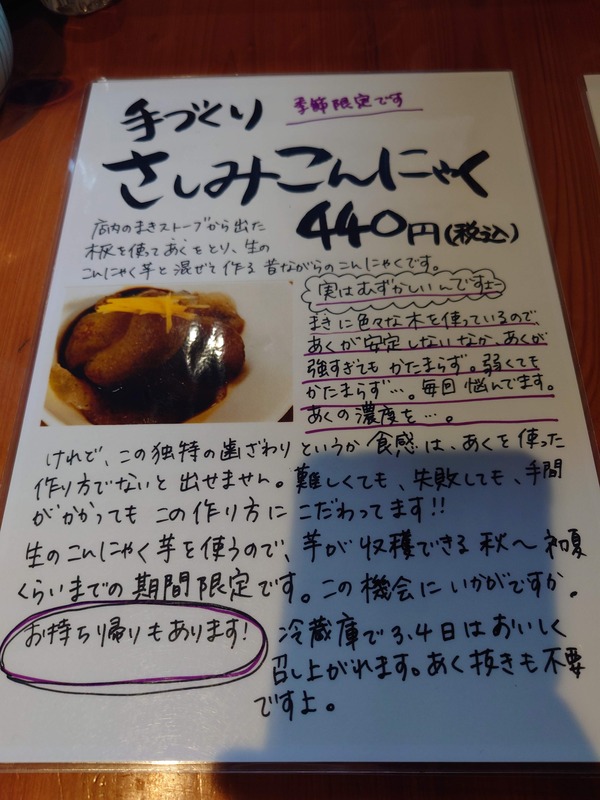 季節限定です
手づくり
さしみこんにゃく
440円(税込)
店内のまきストーブから出た
木灰を使ってあくをとり、生の
こんにゃく芋と混ぜて作る昔ながらのこんにゃくです。
実はむずかしいんですよー
まきに色々な木を使っているので、
あくが安定しないなか、あくが
強すぎてもかたまらず。弱くても
かたまらず…。毎回悩んでます。
あくの濃度を…。
けれど、この独特の歯ざわりというか食感は、あくを使った
作り方でないと出せません。難しくても、失敗しても、手間
がかかってもこの作り方にこだわってます!!
生のこんにゃく芋を使うので、芋が収穫できる秋〜初夏
くらいまでの期間限定です。この機会にいかがですか。
お持ち帰りもあります!
冷蔵庫で3.4日はおいしく
召し上がれます。あく抜きも不要
ですよ。